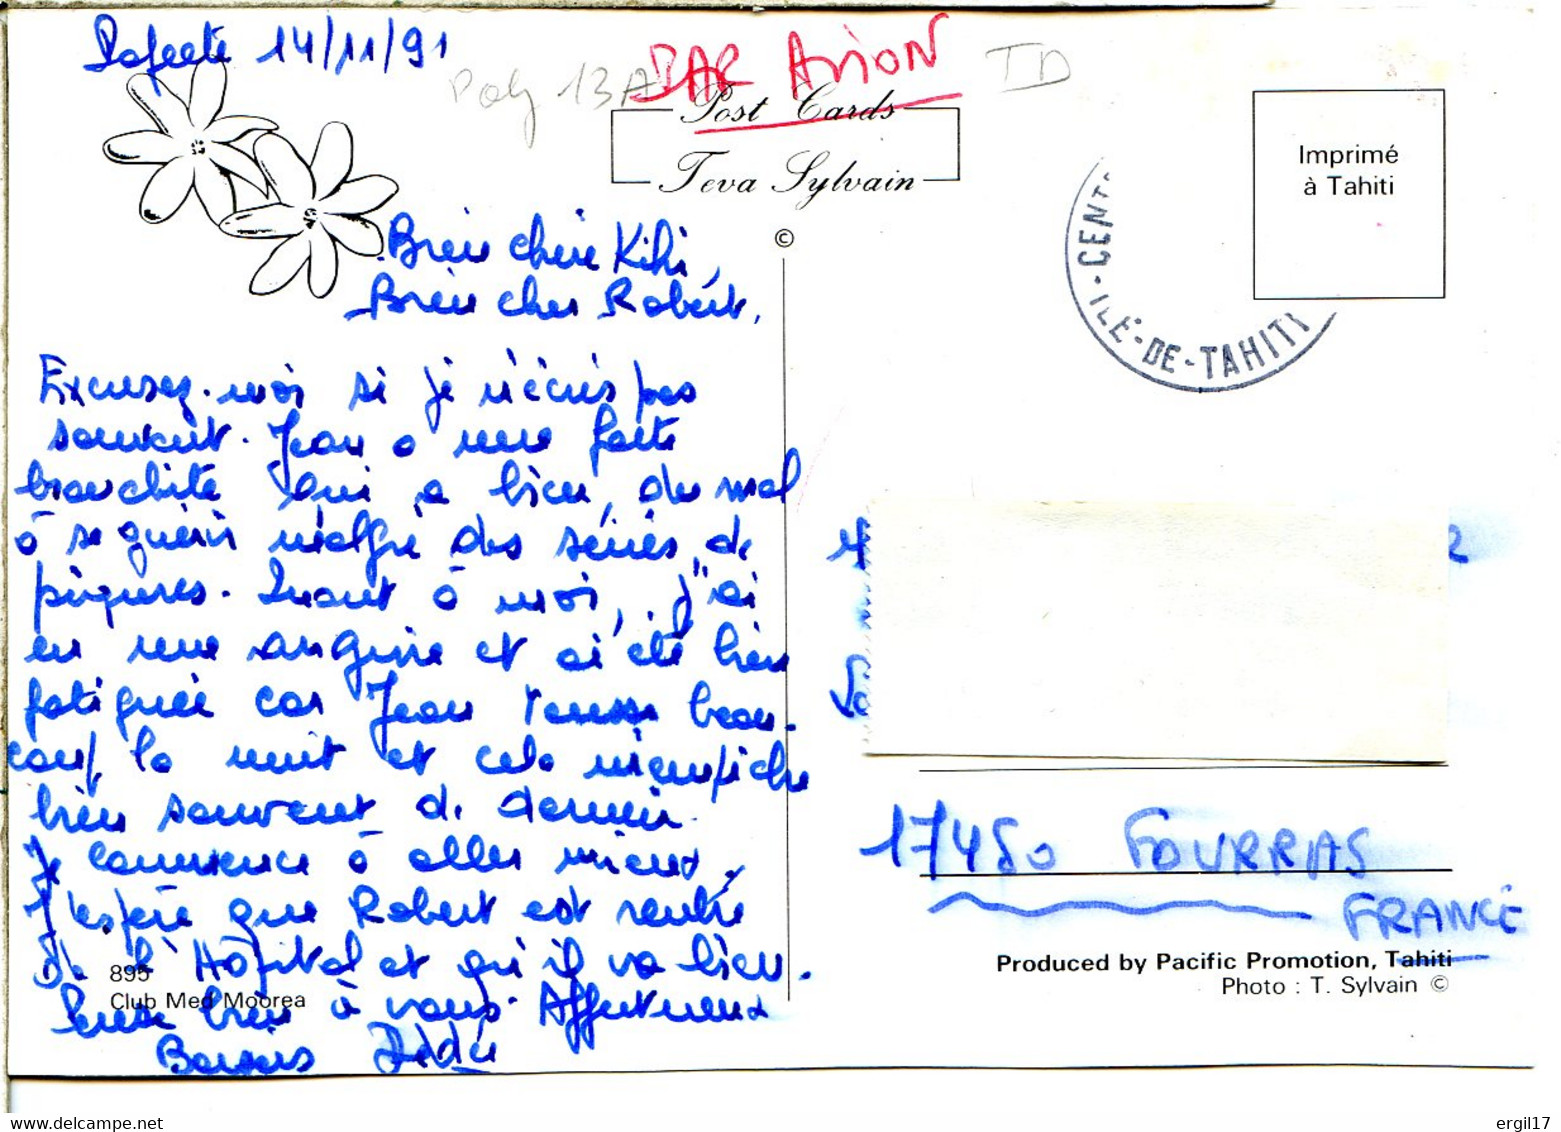 Papeete 14/11/91
Poly 13A
PAR AVION
TD
Post Cards
Teva Sylvain
©
Imprimé
à Tahiti
CENT
ILE-DE-TAHITI
Bien chère Kiki,
Bien cher Robert,
Excusez-moi si je n'écris pas
souvent. Jean a une forte
bronchite qui a bien du mal
à se guérir malgré des séries de
piqures. Quant à moi, j'ai
eu une angine et ai été bien
fatiguée car Jean tousse beau-
coup la nuit et cela m'empêche
bien souvent de dormir.
Je commence à aller mieux.
J'espère que Robert est rentré
de l'Hôpital et qu'il va bien.
Pense bien à vous. Affectueux
Baisers
17450 FOURRAS
FRANCE
895
Club Med Moorea
Produced by Pacific Promotion, Tahiti
Photo : T. Sylvain ©
www.delcampe.net
ergil17